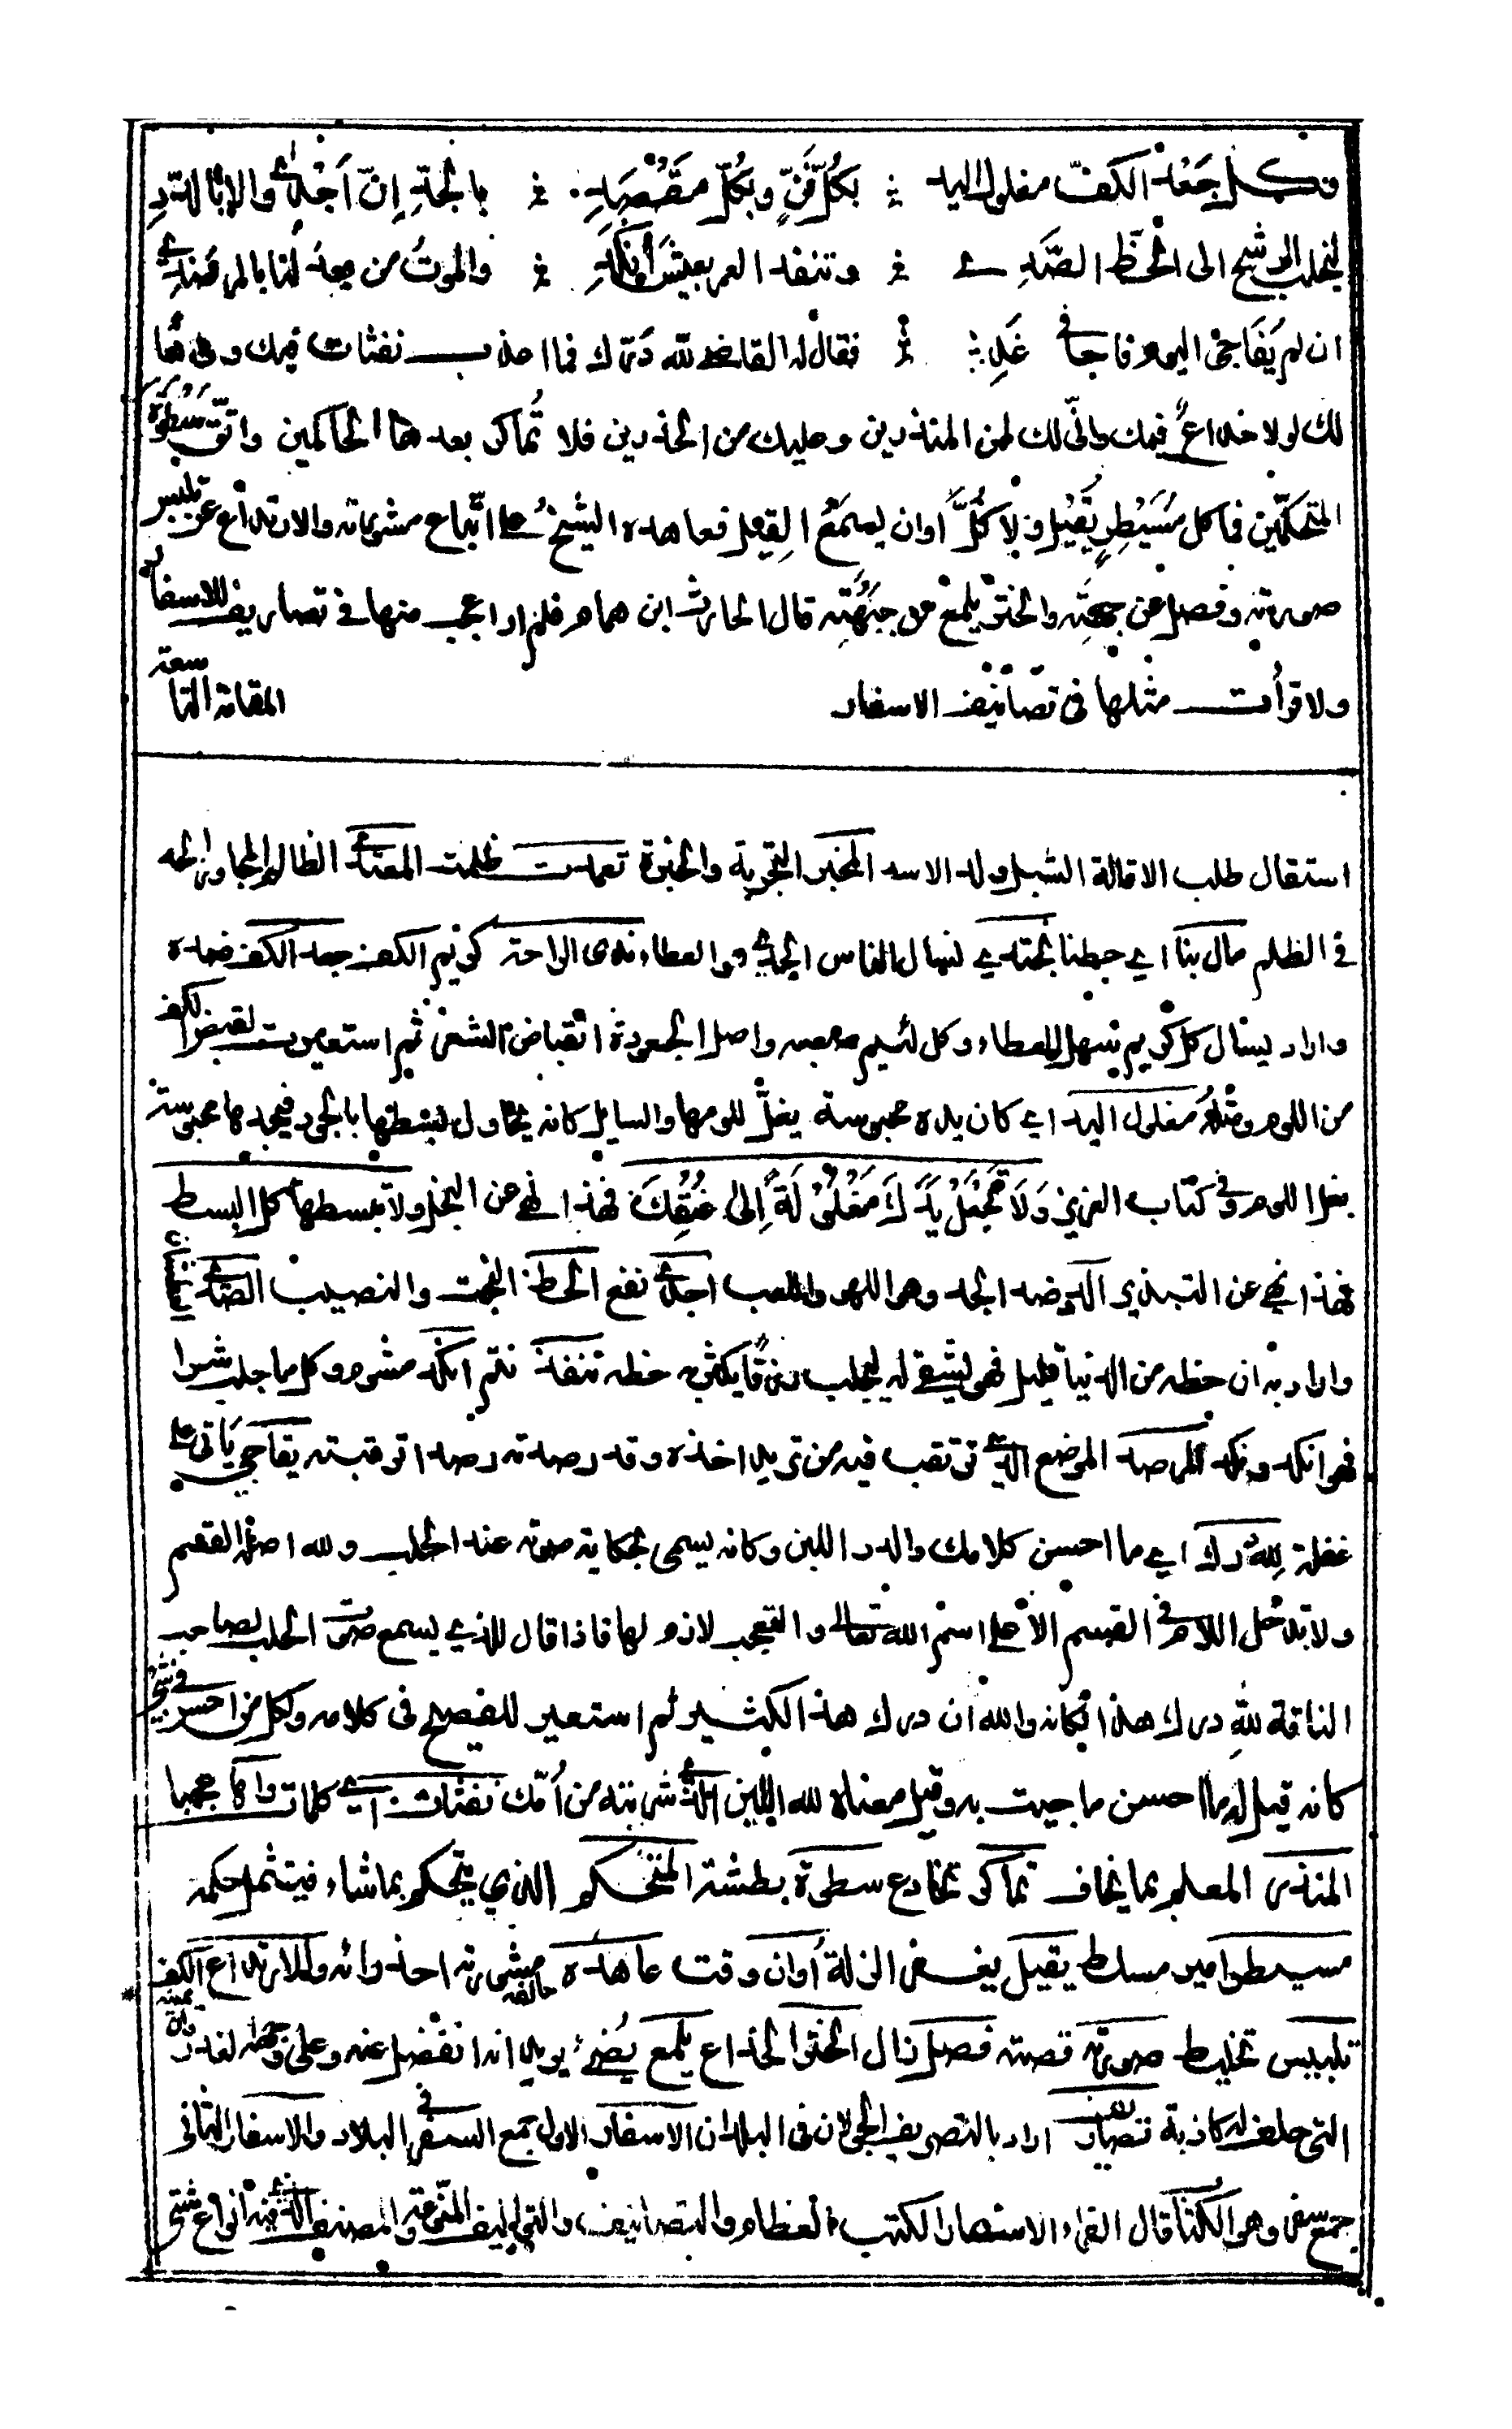 وكل جعد الكف مغلول اليد ؞ بكل فن وبكل مقصد ؞ بالجد إن أجدى والا بالدد
لنجلب الرشح الى الحظ الصدي ؞ وننفد العمر بعيش أنكد ؞ والموت من بعد لنا بالمرصد
ان لم يفاجئ اليوم فاجا في غد ؞ فقال له القاضي لله درك فما اعذب نفثات فيك وواها
لك لولا خداع فيك واني لك لمن المنذرين وعليك من الحذرين فلا تماكر بعدها الحاكمين واتق سطوة
المتحكمين فما كل مسيطر يقيل ولا كل اوان يسمع القيل فعاهده الشيخ على اتباع مشورته والارتداع عن تلبيس
صورته وفصل عن جهته والختر يلمع من جبهته قال الحارث ابن همام فلم ار اعجب منها في تصاريف الاسفار
ولا قرأت مثلها في تصانيف الاسفار المقامة التاسعة
استقال طلب الاقالة الشبل ولد الاسد المخبر التجربة والخبرة تعديت ظلمت المعتدي الظالم المجاوز الحد
في الظلم مال بنا اي حطنا نجتدي نسال الناس الجدي وهو العطاء ندى الراحة كريم الكف جعد الكف ضده
واراد يسال كل كريم سهل العطاء وكل لئيم صعبه واصل الجعودة انقباض الشعر ثم استعيرت لقبض الكف
من اللوم ومثله مغلول اليد اي كان يده محبوسة بغل للومها والسايل كانه يحاول لبسطها بالجود فيجدها محبوسة
بغل اللوم وفي كتاب العزيز ولا تجعل يدك مغلولة إلى عنقك فهذا نهي عن البخل ولا تبسطها كل البسط
فهذا نهي عن التبذير الدد ضد الجد وهو اللهو واللعب اجدى نفع الحظ البخت والنصيب الصدي العطشان
واراد به ان حظه من الدنيا قليل فهو يسقي له ليجلب رزقا يكثر به حظه ننفد نتم انكد مشوم وكل ما جلب شرا
فهو انكد ونكد المرصد الموضع الذي ترتقب فيه من تريد اخذه وقد رصدته رصدا ترقبته يفاجي ياتي على
غفلة لله درك اي ما احسن كلامك والدر اللبن وكانه يسمى بحكاية صوته عند الحلب ولله اصله القسم
ولا تدخل اللام في القسم الا على اسم الله تعالى والتعجب لازم لها فاذا قال الذي يسمع صوت الحلب لصاحب
الناقة لله درك هذا فكانه والله ان درك هذا لكثير ثم استعير للفصيح في كلامه ولكل من احسن في شيء
كانه قيل له ما احسن ما جيت به وقيل معناه لله اللبن الذي شربته من أمك نفثات اي كلمات واها عجبا
المنذر المعلم بما يخاف تماكر تخادع سطوة بطشة المتحكم الذي يتحكم بما شاء فيتمثل حكمه
مسيطر امير مسلط يقيل يغفر الزلة أوان وقت عاهده حالفه مشورته اخذ رائه والارتداع الكف
تلبيس تخليط صورته قصته فصل زال الختر الخداع يلمع يضيء يريد انه انفصل عنه وعلى وجهه لغدر وان يمينه
التي حلف له كاذبة تصاريف اراد بالتصريف الجولان في البلدان الاسفار الاول جمع السفر في البلاد والاسفار الثاني
جمع سفر وهو الكتاب قال الفراء الاسفار الكتب العظام والتصانيف والتواليف المنوعة والمصنف الذي فيه أنواع شتى